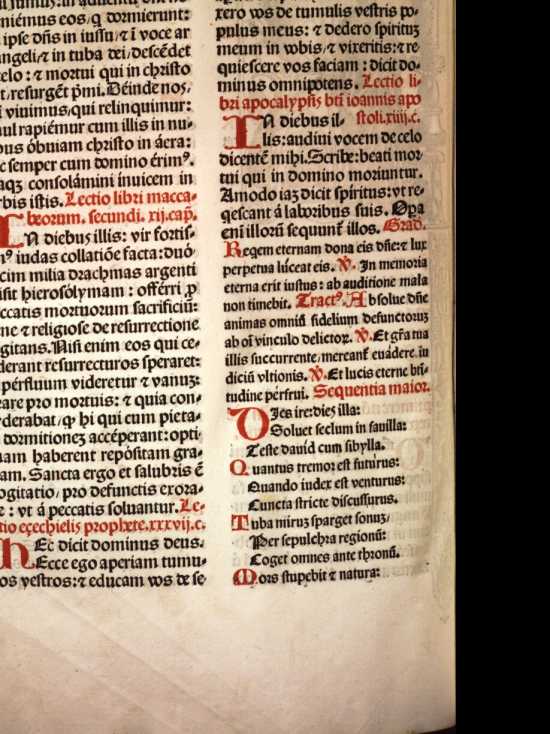 miémus eos, ꝗ dormierunt:
ipse dñs in iussu, ⁊ ī voce ar
angeli, ⁊ in tuba dei, descēdet
celo: ⁊ mortui qui in christo
t, resurgēt p̃mi. Déinde nos,
i vivimus, qui relinquimur:
ul rapiémur cum illis in nu-
bus óbuiam christo in áera:
c semper cum domino érimꝰ.
aqꝫ consolámini inuicem in
rbis istis. Lectio libri macca-
beorum. secundi. xij. cap̃.
IN diebus illis: vir fortis-
mꝰ iudas collatiōe facta: duó
cim milia drachmas argenti
isit hierosólymam: offérri ꝓ
eccatis mortuorum sacrificiū:
ne ⁊ religiose de resurrectione
ogitans. Nisi enim eos qui ce-
derant resurrecturos speraret:
pérfluum videretur ⁊ vanuꝫ:
rare pro mortuis: ⁊ quia con-
yderabat, ꝙ hi qui cum pieta-
dormitionez accéperant: opti
uam haberent repósitam gra-
iam. Sancta ergo et salubris ē
ogitatio, pro defunctis exora-
e: vt á peccatis soluantur. Le-
tio eçechielis prophete. xxxvij. c.
HEc dicit dominus deus.
Ecce ego aperiam tumu-
os vestros: ⁊ educam vos de se
xero vos de tumulis vestris po-
pulus meus: ⁊ dedero spirituꝫ
meum in vobis, ⁊ vixeritis: ⁊ re-
quiescere vos faciam: dicit do-
minus omnipotens. Lectio li-
bri apocalypsis btī ioannis apo
IN diebus il- stoli. xiiij. c.
lis: audini vocem de celo
dicentē mihi. Scribe: beati mor-
tui qui in domino moriuntur.
Amodo iaꝫ dicit spiritus: vt re-
qescant á laboribus suis. Opa
eni illorū sequunt̃ illos. Grad.
Reqem eternam dona eis dñe: ⁊ lux
perpetua lúceat eis. ℣. In memoria
eterna erit iustus: ab auditione mala
non timebit. Tractꝰ. Absolue dñe
animas omniū fidelium defunctoruꝫ
ab oī vinculo delictoꝝ. ℣. Et gr̃a tua
illis succurrente, mereant̃ euádere iu
diciū vltionis. ℣. Et lucis eterne bti-
tudine pérfrui. Sequentia maior.
DIes ire: dies illa:
Soluet seclum in fauilla:
Teste dauid cum sibylla.
Quantus tremor est futúrus:
Quando iudex est venturus:
Cuncta stricte discussurus.
Tuba miruꝫ sparget sonuꝫ,
Per sepulchra regionū:
Coget omnes ante thronū.
Mors stupebit ⁊ natura: